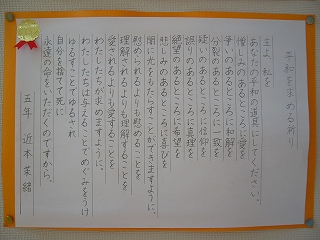 平和を求める祈り
主よ、私を
あなたの平和の道具にしてください。
憎しみのあるところに愛を
争いのあるところに和解を
分裂のあるところに一致を
疑いのあるところに信仰を
誤りのあるところに真理を
絶望のあるところに希望を
悲しみのあるところに喜びを
闇に光をもたらすことができますように。
慰められるよりも慰めることを
理解されるよりも理解することを
愛されるよりも愛することを
わたしが求めますように。
わたしたちは与えることでめぐみをうけ
ゆるすことでゆるされ
自分を捨てて死に
永遠の命をいただくのですから。
五年 近本 菜緒